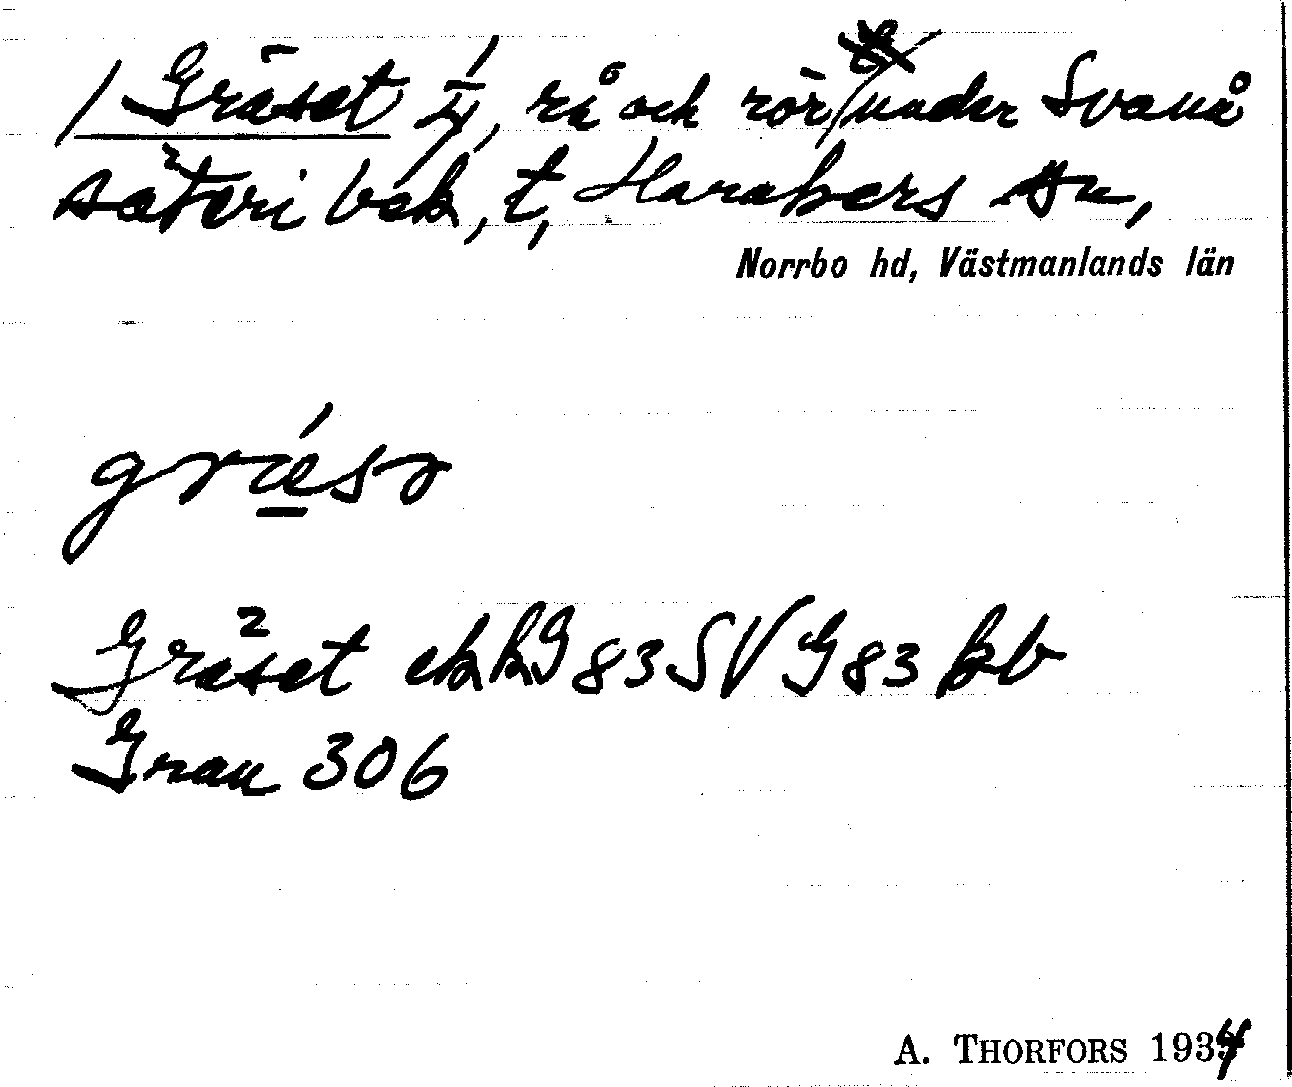 / Gräset 1/4, rå och rör / under Svanå
säteri bek, t, Harakers sn,
Norrbo hd, Västmanlands län
gräsə
Gräset ekkG 83 SV G 83 kb
Gran 306
A. THORFORS 1934